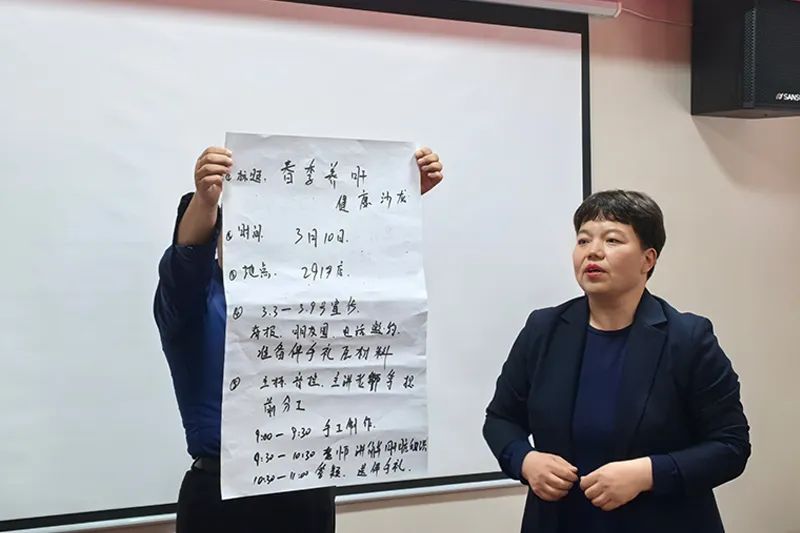 ① 标题: 春季养肝
健康沙龙
② 时间: 3月10日.
③ 地点: 291步店.
④ 3.3—3.9号宣传
海报、朋友圈、电话邀约.
准备伴手礼及材料
⑤ 主持、音控、主讲老师等提
前分工
9:00—9:30 手工制作.
9:30—10:30 老师讲解
10:30—11:00 答疑、送伴手礼.
SANS